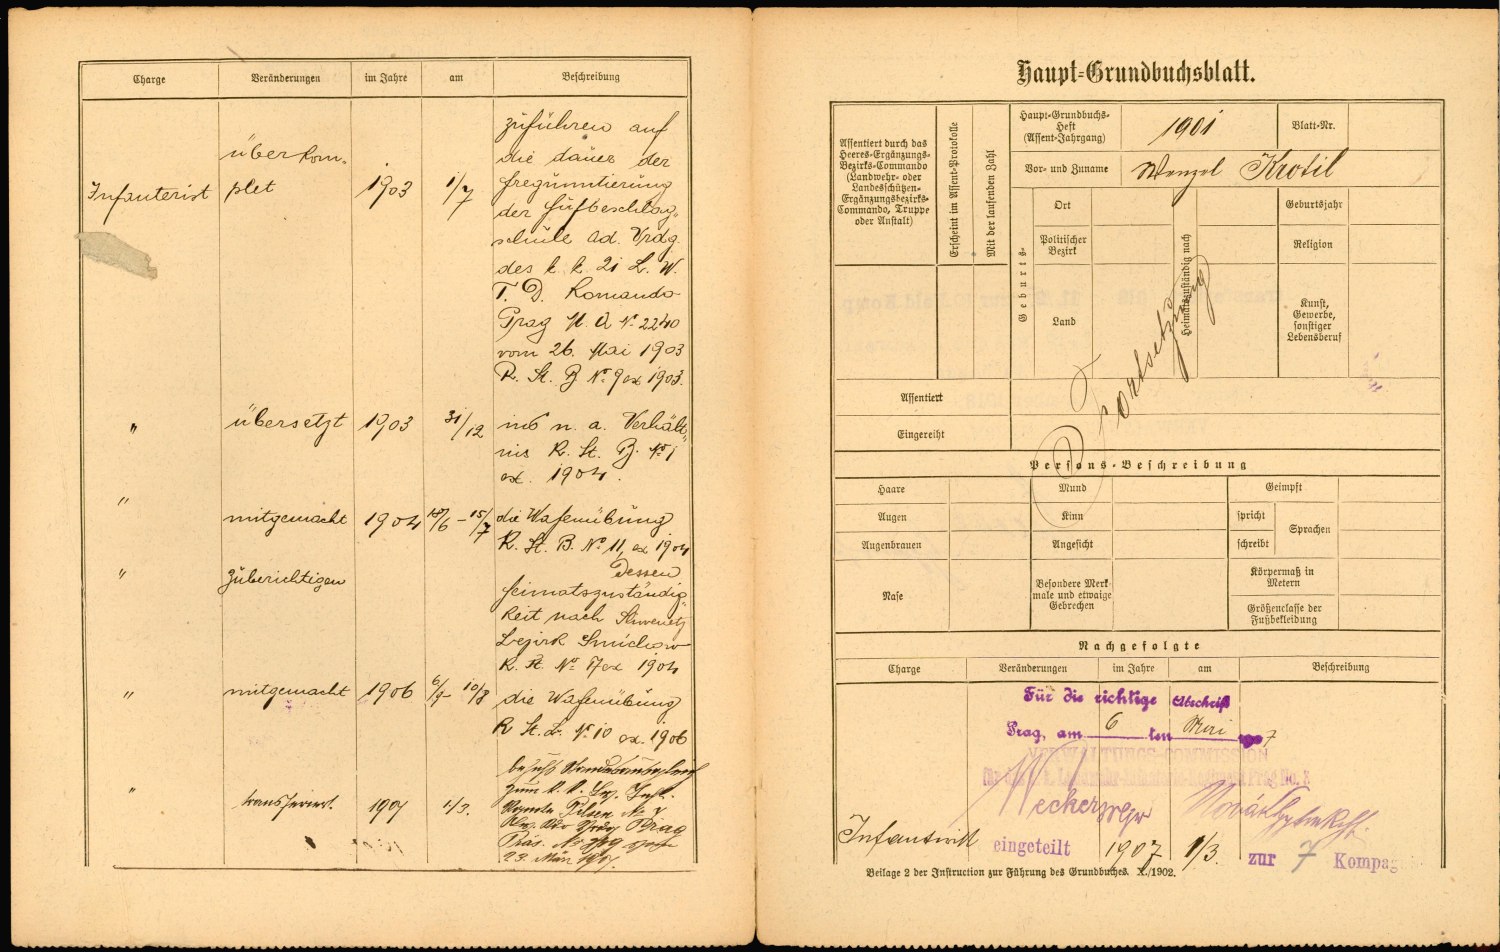 Charge Veränderungen im Jahre am Beschreibung
zuführen auf
die dauer der
Infanterist überkom-
plet 1903 1/7 fregunntierung
der Hufbeschlag-
schule ad. Vrdg.
des k. k. 21 L. W.
T. D. Komando
Prag M. A № 2240
vom 26. Mai 1903
R. St. B № 9 ex 1903.
" übersetzt 1903 31/12 ins n. a. Verhält-
nis R. St. B. № 1
ex. 1904.
" mitgemacht 1904 18/6 - 15/7 die Wafenübung
R. St. B. № 11 ex 1904
" zuberichtigen Dessen
heimatszuständig-
keit nach
Bezirk Smichow
R. St. № 17 ex 1904
" mitgemacht 1906 - 10/8 die Wafenübung
R. St. № 10 ex. 1906
" transferiert. 1907 1/3. behufs
zum k. k. Inft.
Pilsen № 7
Prag
Präs. №
23. März 1907.
Haupt-Grundbuchsblatt.
Assentiert durch das
Heeres-Ergänzungs-
Bezirks-Commando
(Landwehr- oder
Landesschützen-
Ergänzungsbezirks-
Commando, Truppe
oder Anstalt)
Erscheint im Assent-Protokolle
Mit der laufenden Zahl
Haupt-Grundbuchs-
Heft
(Assent-Jahrgang)
1901
Blatt-Nr.
Vor- und Zuname Wenzel Krotil
Geburts-
Ort
Politischer
Bezirk
Land
Heimatszuständig nach
Geburtsjahr
Religion
Kunst,
Gewerbe,
sonstiger
Lebensberuf
Fortsetzung
Assentiert
Eingereiht
Persons-Beschreibung
Haare Mund Geimpft
Augen Kinn spricht
schreibt
Sprachen
Augenbrauen Angesicht
Nase
Besondere Merk-
male und etwaige
Gebrechen
Körpermaß in
Metern
Größenclasse der
Fußbekleidung
Nachgefolgte
Charge Veränderungen im Jahre am Beschreibung
Für die richtige Abschrift
Prag, am 6 ten 7
VERWALTUNGS-COMMISSION
Infanterist eingeteilt 1907 1/3. zur 7 Kompag
Beilage 2 der Instruction zur Führung des Grundbuches. X./1902.